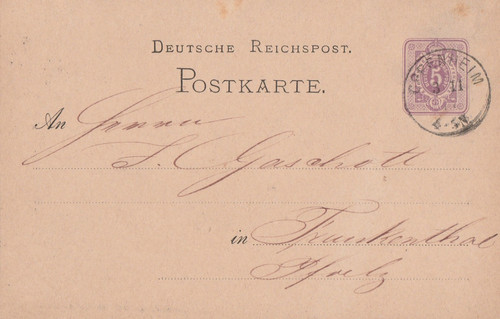 DEUTSCHE REICHSPOST.
POSTKARTE.
5
11
4-5N
An Herrn
L. Gaschott
in Frankenthal
Pfalz